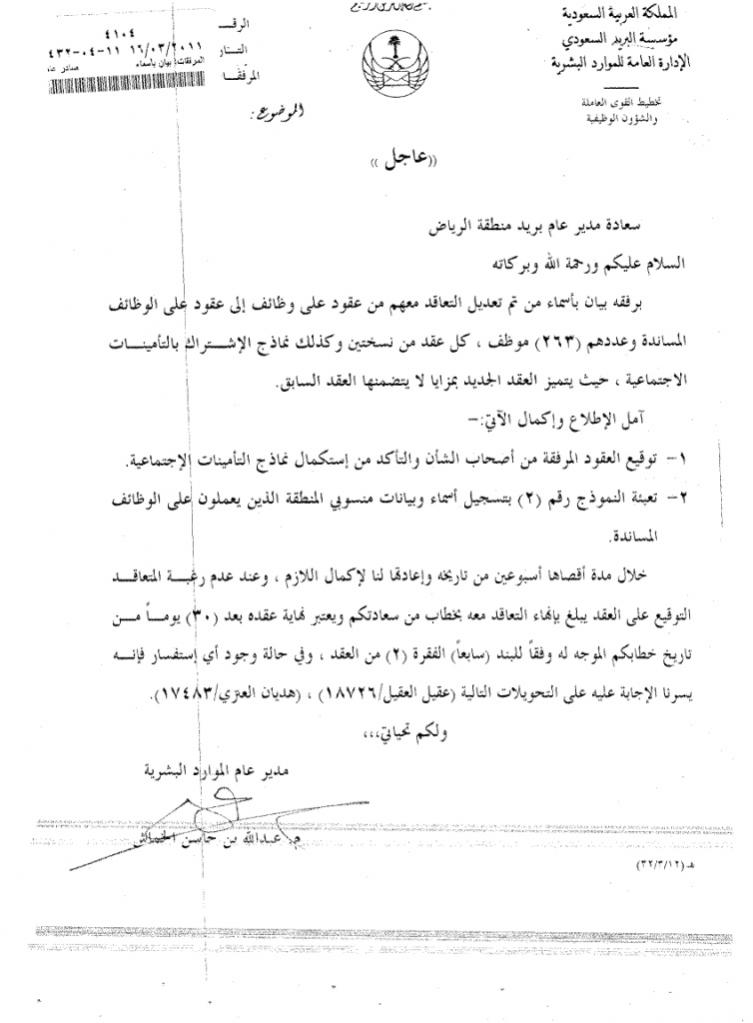 المملكة العربية السعودية
مؤسسة البريد السعودي
الإدارة العامة للموارد البشرية
تخطيط القوى العاملة
والشؤون الوظيفية
الرقـ
٤١٠٤
التـار
١٦/٠٣/٢٠١١ ٤٣٢-٠٤-١١
المرفقات: بيان بأسماء
صادر عام
المرفقـا
الموضوع:
((عاجل))
سعادة مدير عام بريد منطقة الرياض
السلام عليكم ورحمة الله وبركاته
برفقه بيان بأسماء من تم تعديل التعاقد معهم من عقود على وظائف إلى عقود على الوظائف
المساندة وعددهم (٢٦٣) موظف ، كل عقد من نسختين وكذلك نماذج الإشتراك بالتأمينات
الاجتماعية ، حيث يتميز العقد الجديد بمزايا لا يتضمنها العقد السابق.
آمل الإطلاع وإكمال الآتي:-
١- توقيع العقود المرفقة من أصحاب الشأن والتأكد من إستكمال نماذج التأمينات الإجتماعية.
٢- تعبئة النموذج رقم (٢) بتسجيل أسماء وبيانات منسوبي المنطقة الذين يعملون على الوظائف
المساندة.
خلال مدة أقصاها أسبوعين من تاريخه وإعادتها لنا لإكمال اللازم ، وعند عدم رغبة المتعاقد
التوقيع على العقد يبلغ بإنهاء التعاقد معه بخطاب من سعادتكم ويعتبر نهاية عقده بعد (٣٠) يوماً من
تاريخ خطابكم الموجه له وفقاً للبند (سابعاً) الفقرة (٢) من العقد ، وفي حالة وجود أي إستفسار فإنه
يسرنا الإجابة عليه على التحويلات التالية (عقيل العقيل/١٨٧٢٦) ، (هديان العنزي/١٧٤٨٣).
ولكم تحياتي،،،
مدير عام الموارد البشرية
م. عبدالله بن حاسن
هـ (٣٢/٣/١٢)